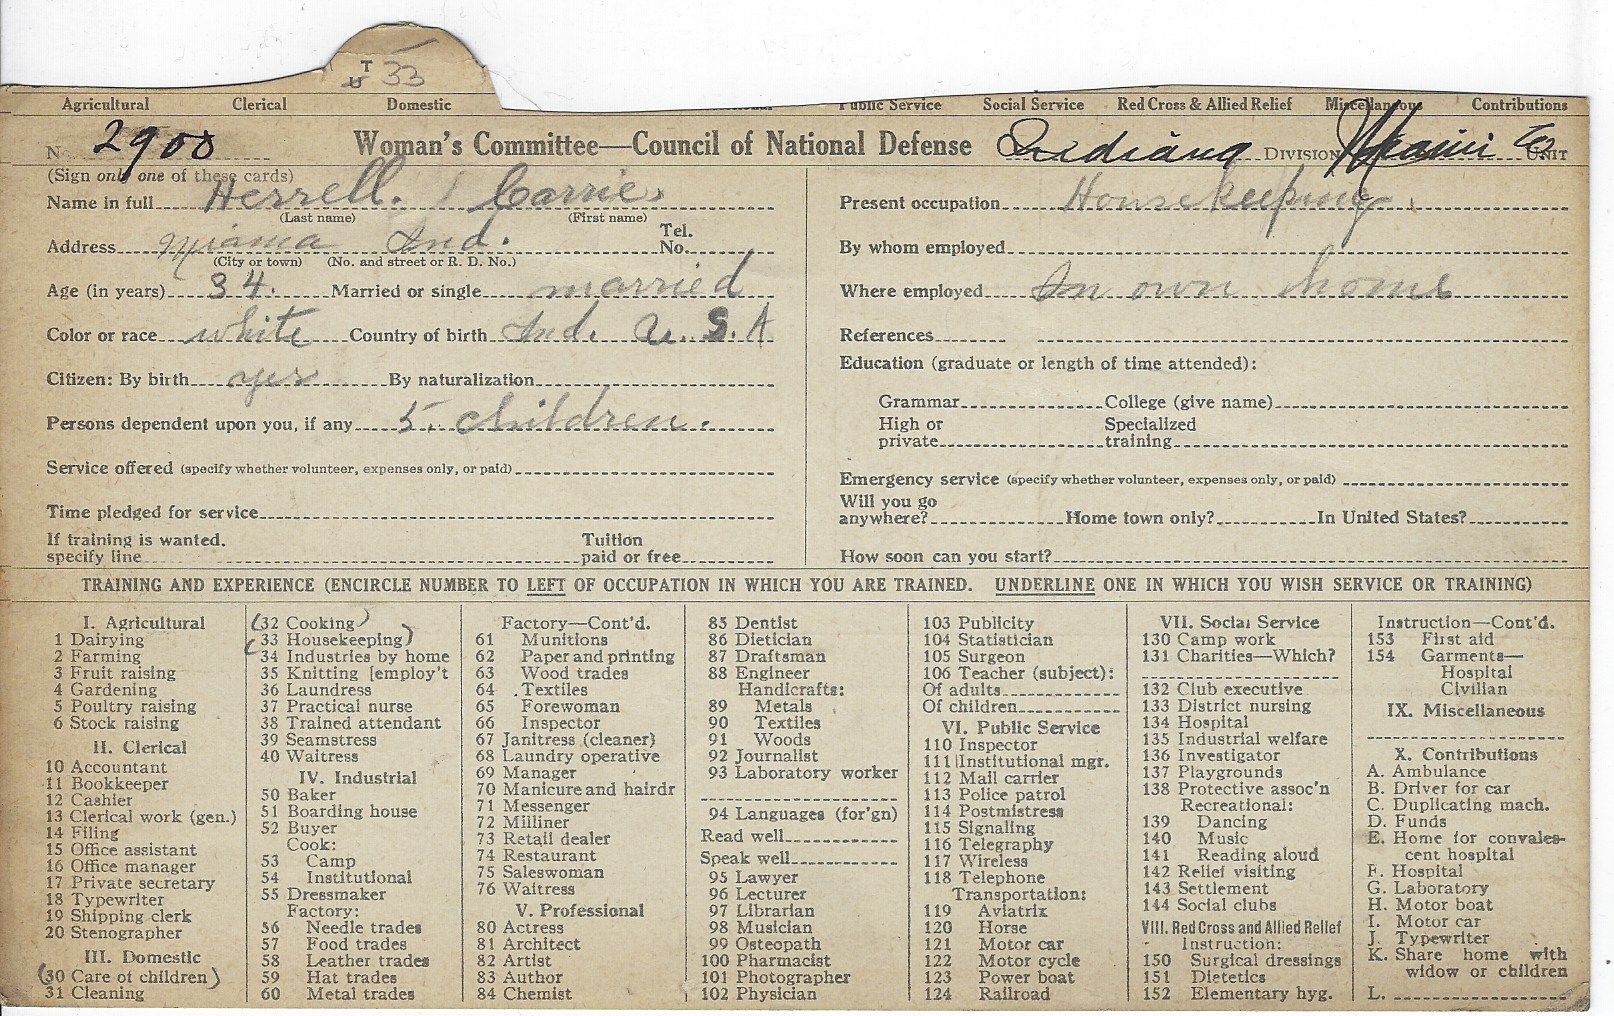 T
U 33
Agricultural Clerical Domestic Public Service Social Service Red Cross & Allied Relief Miscellaneous Contributions
N 2900 Woman's Committee—Council of National Defense Indiana DIVISION Miami Co UNIT
(Sign only one of these cards)
Name in full Herrell. Carrie.
(Last name) (First name)
Address Miama Ind. Tel. No.
(City or town) (No. and street or R. D. No.)
Age (in years) 34. Married or single married
Color or race white Country of birth Ind. U. S. A
Citizen: By birth yes By naturalization
Persons dependent upon you, if any 5. children.
Service offered (specify whether volunteer, expenses only, or paid)
Time pledged for service
If training is wanted, specify line Tuition paid or free
Present occupation Housekeeping.
By whom employed
Where employed In own home
References
Education (graduate or length of time attended):
Grammar College (give name)
High or private Specialized training
Emergency service (specify whether volunteer, expenses only, or paid)
Will you go anywhere? Home town only? In United States?
How soon can you start?
TRAINING AND EXPERIENCE (ENCIRCLE NUMBER TO LEFT OF OCCUPATION IN WHICH YOU ARE TRAINED. UNDERLINE ONE IN WHICH YOU WISH SERVICE OR TRAINING)
I. Agricultural
1 Dairying
2 Farming
3 Fruit raising
4 Gardening
5 Poultry raising
6 Stock raising
II. Clerical
10 Accountant
11 Bookkeeper
12 Cashier
13 Clerical work (gen.)
14 Filing
15 Office assistant
16 Office manager
17 Private secretary
18 Typewriter
19 Shipping clerk
20 Stenographer
III. Domestic
(30 Care of children)
31 Cleaning
(32 Cooking)
(33 Housekeeping)
34 Industries by home
35 Knitting [employ't
36 Laundress
37 Practical nurse
38 Trained attendant
39 Seamstress
40 Waitress
IV. Industrial
50 Baker
51 Boarding house
52 Buyer
Cook:
53 Camp
54 Institutional
55 Dressmaker
Factory:
56 Needle trades
57 Food trades
58 Leather trades
59 Hat trades
60 Metal trades
Factory—Cont'd.
61 Munitions
62 Paper and printing
63 Wood trades
64 Textiles
65 Forewoman
66 Inspector
67 Janitress (cleaner)
68 Laundry operative
69 Manager
70 Manicure and hairdr
71 Messenger
72 Milliner
73 Retail dealer
74 Restaurant
75 Saleswoman
76 Waitress
V. Professional
80 Actress
81 Architect
82 Artist
83 Author
84 Chemist
85 Dentist
86 Dietician
87 Draftsman
88 Engineer
Handicrafts:
89 Metals
90 Textiles
91 Woods
92 Journalist
93 Laboratory worker
94 Languages (for'gn)
Read well
Speak well
95 Lawyer
96 Lecturer
97 Librarian
98 Musician
99 Osteopath
100 Pharmacist
101 Photographer
102 Physician
103 Publicity
104 Statistician
105 Surgeon
106 Teacher (subject):
Of adults
Of children
VI. Public Service
110 Inspector
111 Institutional mgr.
112 Mail carrier
113 Police patrol
114 Postmistress
115 Signaling
116 Telegraphy
117 Wireless
118 Telephone
Transportation:
119 Aviatrix
120 Horse
121 Motor car
122 Motor cycle
123 Power boat
124 Railroad
VII. Social Service
130 Camp work
131 Charities—Which?
132 Club executive
133 District nursing
134 Hospital
135 Industrial welfare
136 Investigator
137 Playgrounds
138 Protective assoc'n
Recreational:
139 Dancing
140 Music
141 Reading aloud
142 Relief visiting
143 Settlement
144 Social clubs
VIII. Red Cross and Allied Relief
Instruction:
150 Surgical dressings
151 Dietetics
152 Elementary hyg.
Instruction—Cont'd.
153 First aid
154 Garments—
Hospital
Civilian
IX. Miscellaneous
X. Contributions
A. Ambulance
B. Driver for car
C. Duplicating mach.
D. Funds
E. Home for convales-
cent hospital
F. Hospital
G. Laboratory
H. Motor boat
I. Motor car
J. Typewriter
K. Share home with
widow or children
L.